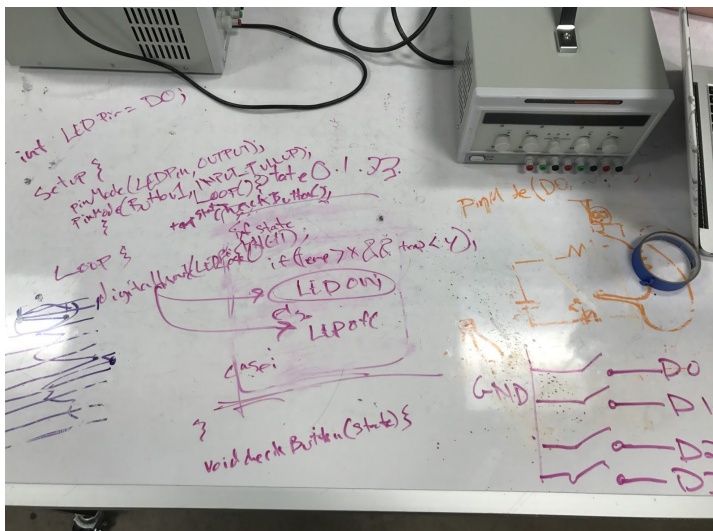 int LEDPin = D0;
Setup {
pinMode(LEDPin, OUTPUT);
pinMode(Button1, INPUT_PULLUP);
}
Loop() {
if state
Loop {
digitalWrite(LEDPin
if(temp > X && temp < Y);
LEDON;
else
LEDOff
case:
}
void checkButton(state){
PinMode(D0,
GND
D0
D1
D2
D3